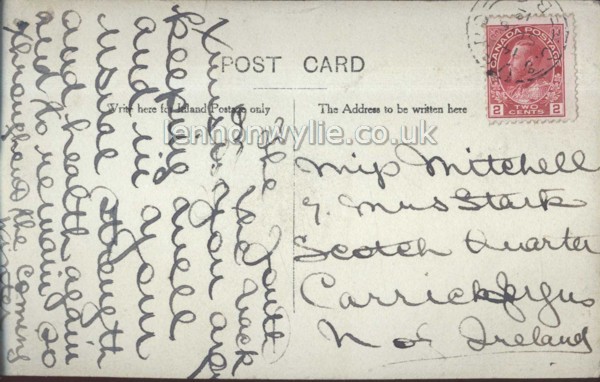 POST CARD
CANADA POSTAGE
2 TWO CENTS 2
Write here for Inland Postage only
The Address to be written here
lennonwylie.co.uk
the South
back
I trust you are
keeping well
and in your
usual strength
and health again
and to remain so
throughout the coming
winter
Miss Mitchell
Mrs Stark
Scotch Quarter
Carrickfergus
N of Ireland